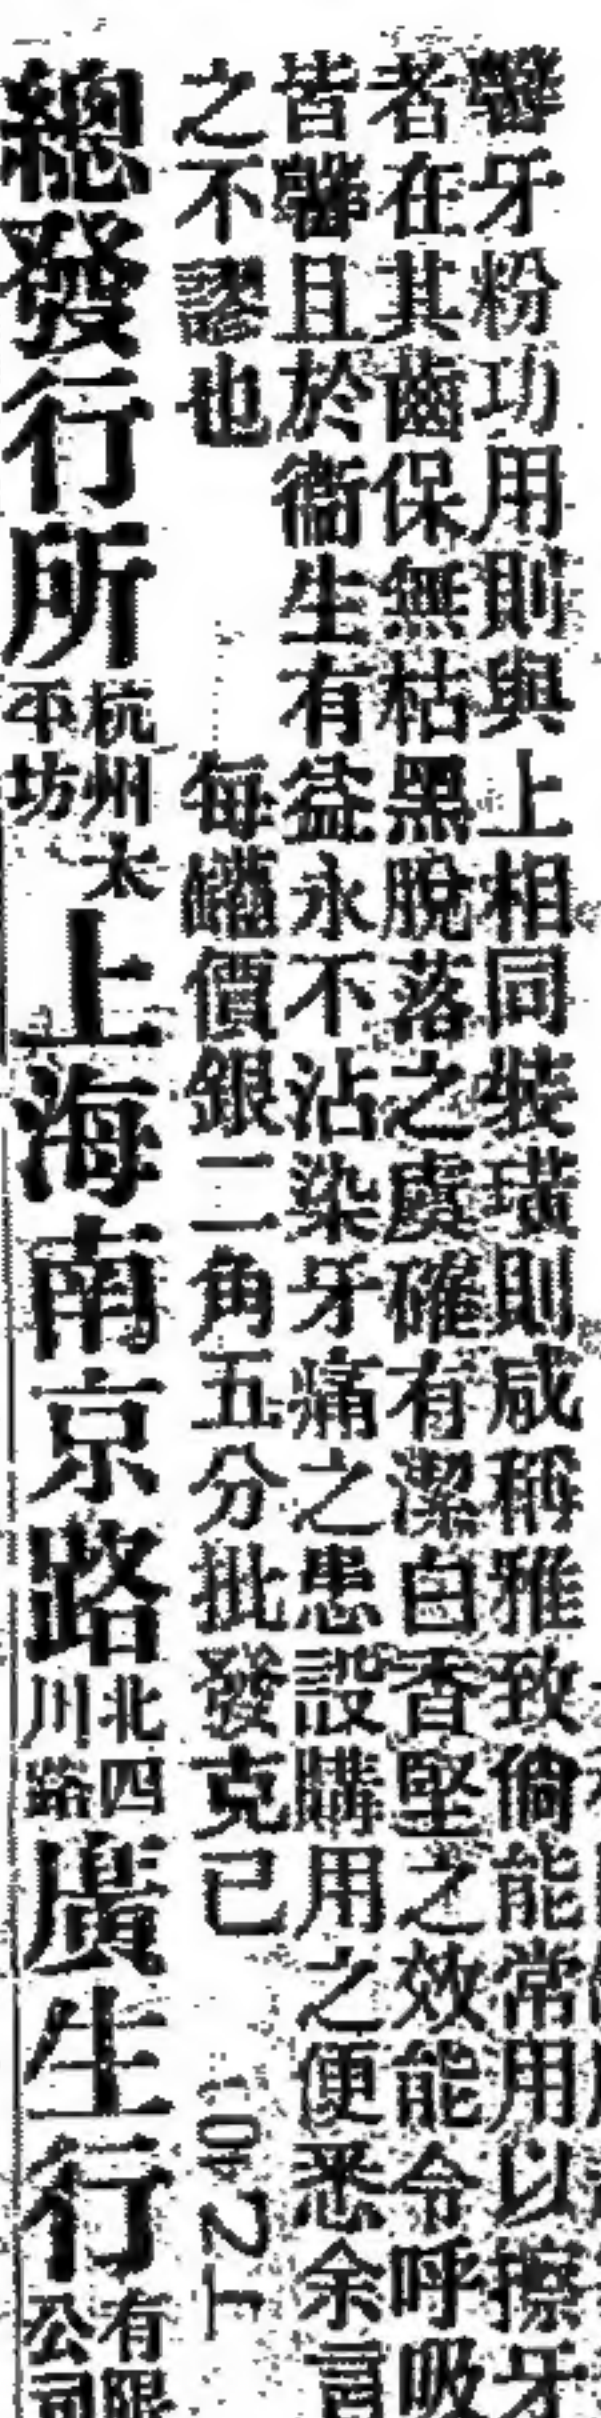 馨牙粉功用則與上相同裝璜則咸稱雅致倘能常用以擦牙
者在其齒保無枯黑脫落之虞確有潔白香堅之效能令呼吸
皆馨且於衞生有益永不沾染牙痛之患設購用之便悉余言
之不謬也 每罐價銀二角五分批發克已
總發行所 杭州太平坊 上海南京路 北四川路 廣生行 有限公司